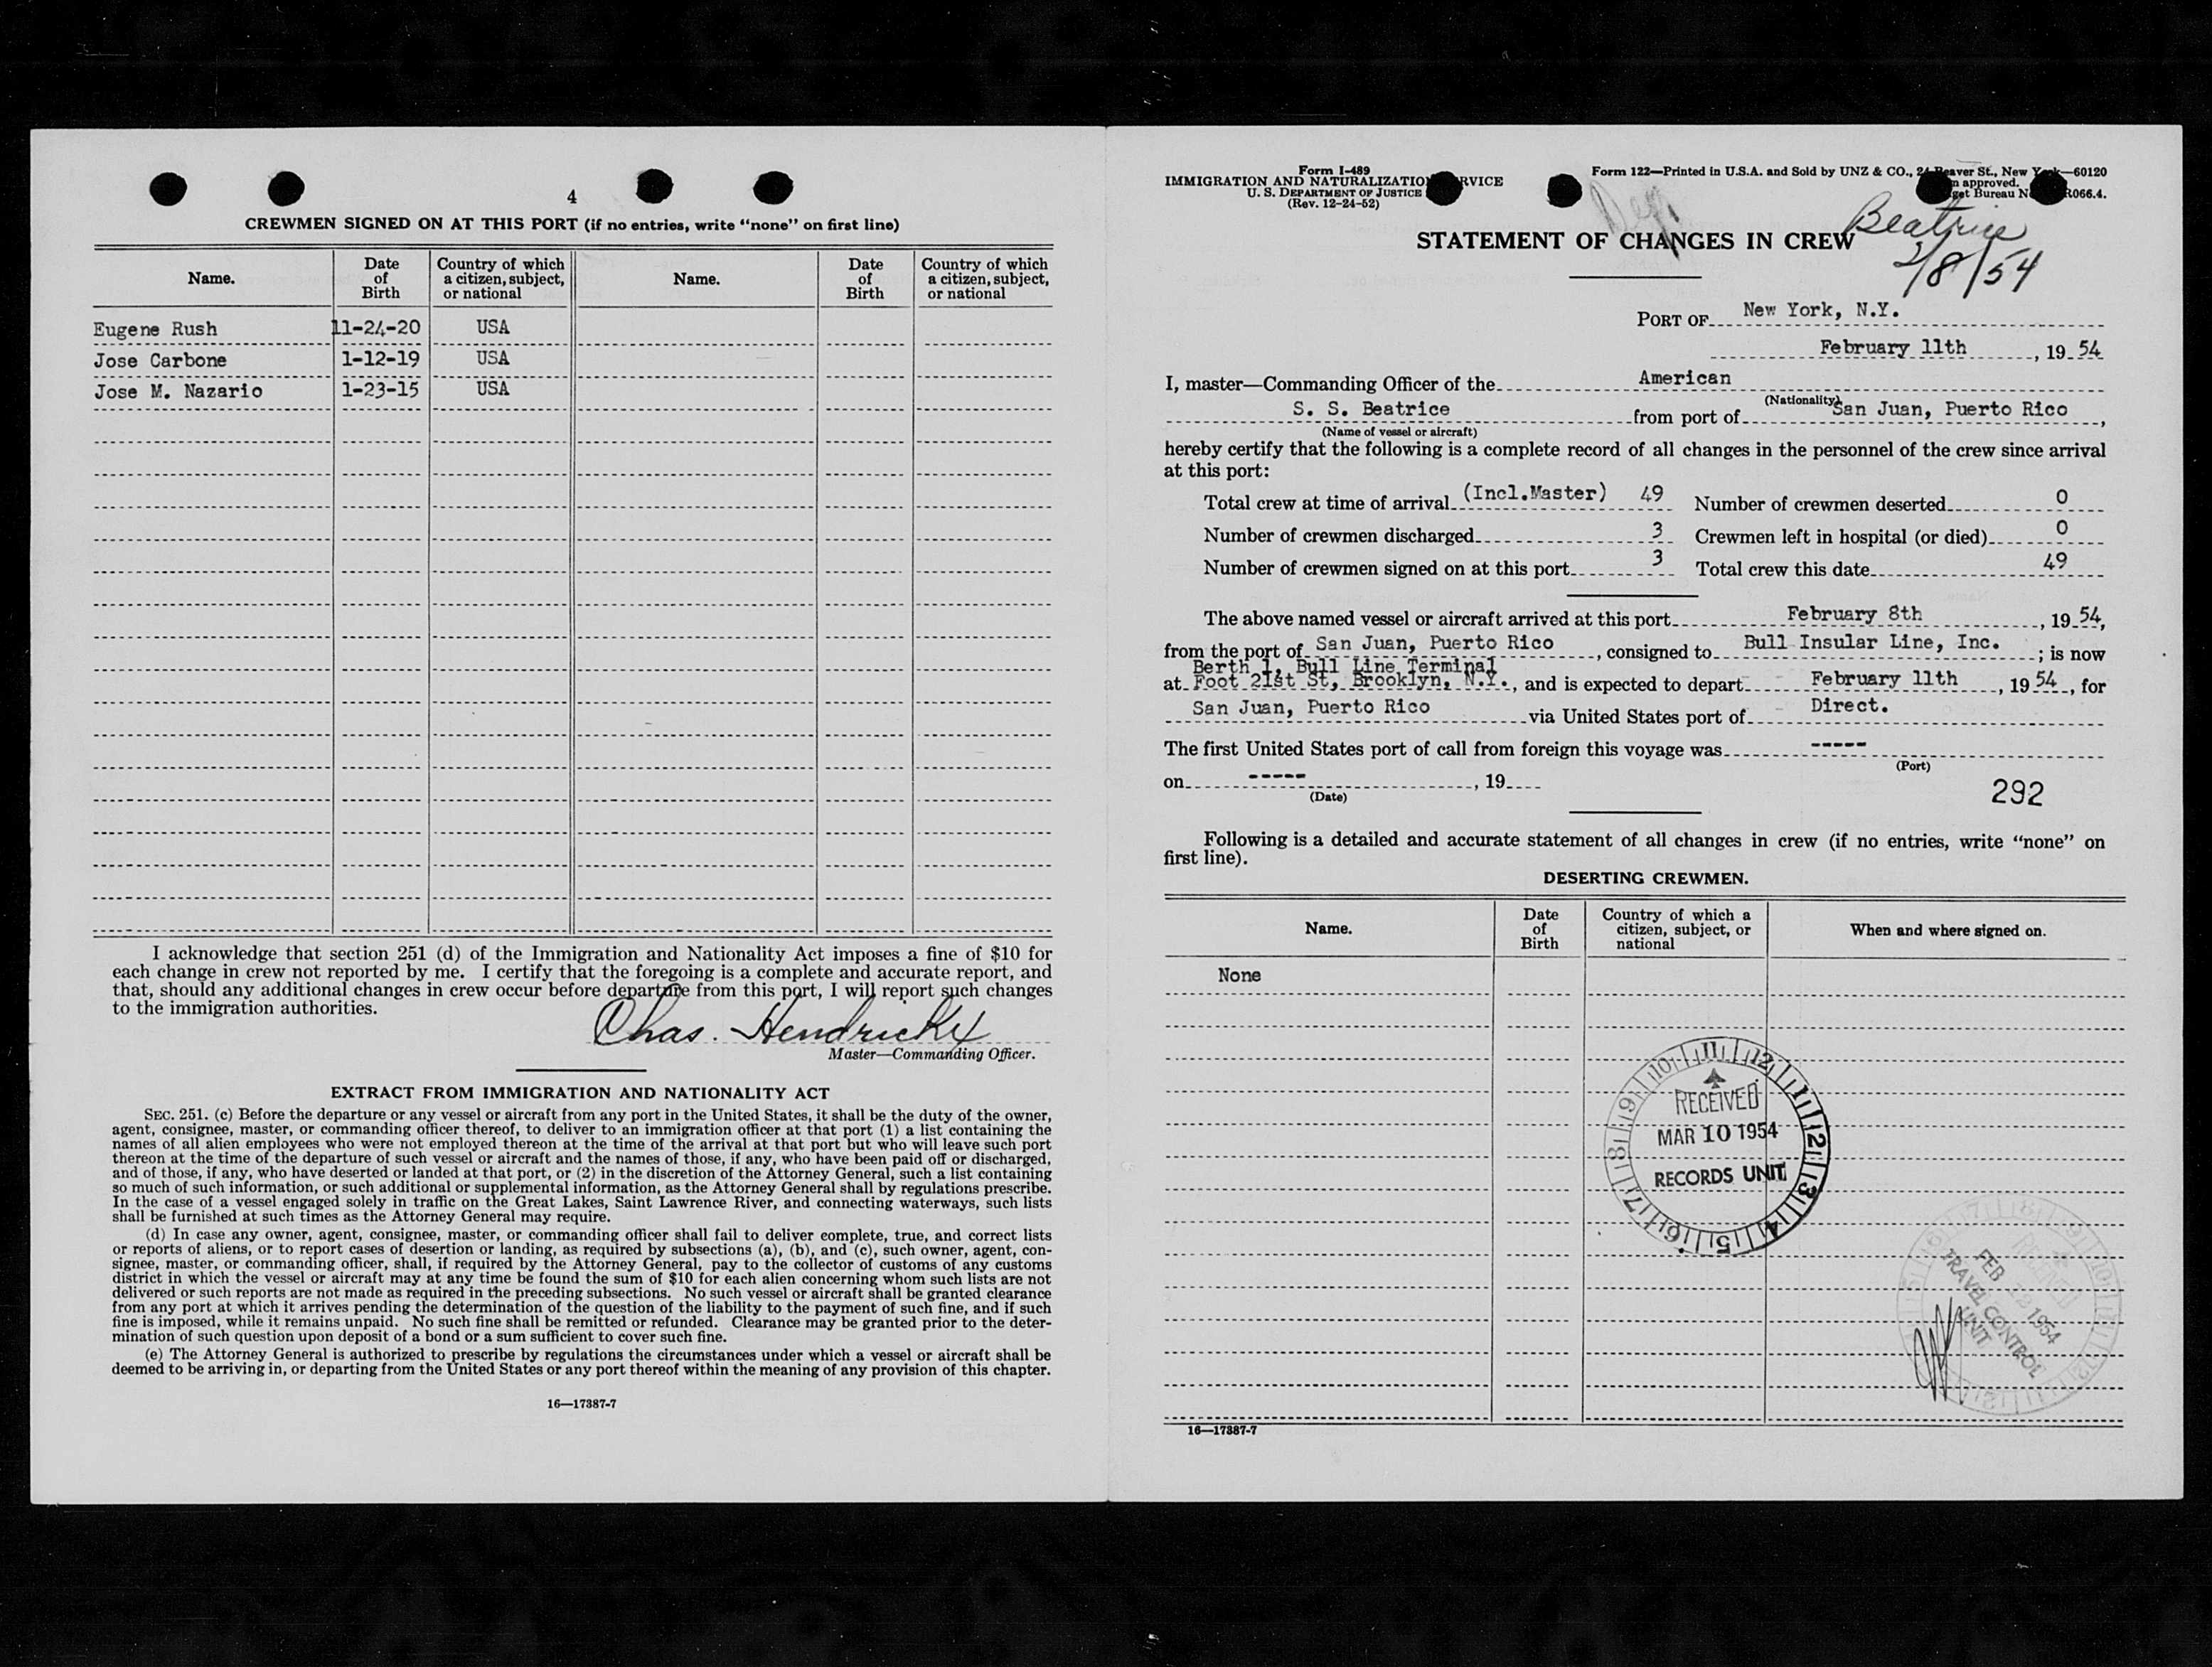 4
CREWMEN SIGNED ON AT THIS PORT (if no entries, write “none” on first line)
Name. Date of Birth Country of which a citizen, subject, or national Name. Date of Birth Country of which a citizen, subject, or national
Eugene Rush 11-24-20 USA
Jose Carbone 1-12-19 USA
Jose M. Nazario 1-23-15 USA
I acknowledge that section 251 (d) of the Immigration and Nationality Act imposes a fine of $10 for
each change in crew not reported by me. I certify that the foregoing is a complete and accurate report, and
that, should any additional changes in crew occur before departure from this port, I will report such changes
to the immigration authorities.
Chas. Hendrickx
Master—Commanding Officer.
EXTRACT FROM IMMIGRATION AND NATIONALITY ACT
SEC. 251. (c) Before the departure or any vessel or aircraft from any port in the United States, it shall be the duty of the owner,
agent, consignee, master, or commanding officer thereof, to deliver to an immigration officer at that port (1) a list containing the
names of all alien employees who were not employed thereon at the time of the arrival at that port but who will leave such port
thereon at the time of the departure of such vessel or aircraft and the names of those, if any, who have been paid off or discharged,
and of those, if any, who have deserted or landed at that port, or (2) in the discretion of the Attorney General, such a list containing
so much of such information, or such additional or supplemental information, as the Attorney General shall by regulations prescribe.
In the case of a vessel engaged solely in traffic on the Great Lakes, Saint Lawrence River, and connecting waterways, such lists
shall be furnished at such times as the Attorney General may require.
(d) In case any owner, agent, consignee, master, or commanding officer shall fail to deliver complete, true, and correct lists
or reports of aliens, or to report cases of desertion or landing, as required by subsections (a), (b), and (c), such owner, agent, con-
signee, master, or commanding officer, shall, if required by the Attorney General, pay to the collector of customs of any customs
district in which the vessel or aircraft may at any time be found the sum of $10 for each alien concerning whom such lists are not
delivered or such reports are not made as required in the preceding subsections. No such vessel or aircraft shall be granted clearance
from any port at which it arrives pending the determination of the question of the liability to the payment of such fine, and if such
fine is imposed, while it remains unpaid. No such fine shall be remitted or refunded. Clearance may be granted prior to the deter-
mination of such question upon deposit of a bond or a sum sufficient to cover such fine.
(e) The Attorney General is authorized to prescribe by regulations the circumstances under which a vessel or aircraft shall be
deemed to be arriving in, or departing from the United States or any port thereof within the meaning of any provision of this chapter.
16—17387-7
Form I-489
IMMIGRATION AND NATURALIZATIO RVICE
U. S. DEPARTMENT OF JUSTICE
(Rev. 12-24-52)
Form 122—Printed in U.S.A. and Sold by UNZ & CO., 24 Beaver St., New York—60120
approved.
get Bureau N R066.4.
STATEMENT OF CHANGES IN CREW
Beatrice
2/8/54
PORT OF New York, N.Y.
February 11th, 19 54
I, master—Commanding Officer of the American
(Nationality)
S. S. Beatrice from port of San Juan, Puerto Rico,
(Name of vessel or aircraft)
hereby certify that the following is a complete record of all changes in the personnel of the crew since arrival
at this port:
Total crew at time of arrival (Incl.Master) 49 Number of crewmen deserted 0
Number of crewmen discharged 3 Crewmen left in hospital (or died) 0
Number of crewmen signed on at this port 3 Total crew this date 49
The above named vessel or aircraft arrived at this port February 8th, 19 54,
from the port of San Juan, Puerto Rico, consigned to Bull Insular Line, Inc.; is now
Berth 1, Bull Line Terminal
at Foot 21st St, Brooklyn, N.Y., and is expected to depart February 11th, 19 54, for
San Juan, Puerto Rico via United States port of Direct.
The first United States port of call from foreign this voyage was -----
(Port)
on -----, 19
(Date)
292
Following is a detailed and accurate statement of all changes in crew (if no entries, write “none” on
first line).
DESERTING CREWMEN.
Name. Date of Birth Country of which a citizen, subject, or national When and where signed on.
None
10 11 12 1 2 3 4 5 6 7 8 9
RECEIVED
MAR 10 1954
RECORDS UNIT
FEB 12 1954
TRAVEL CONTROL
UNIT
16—17387-7